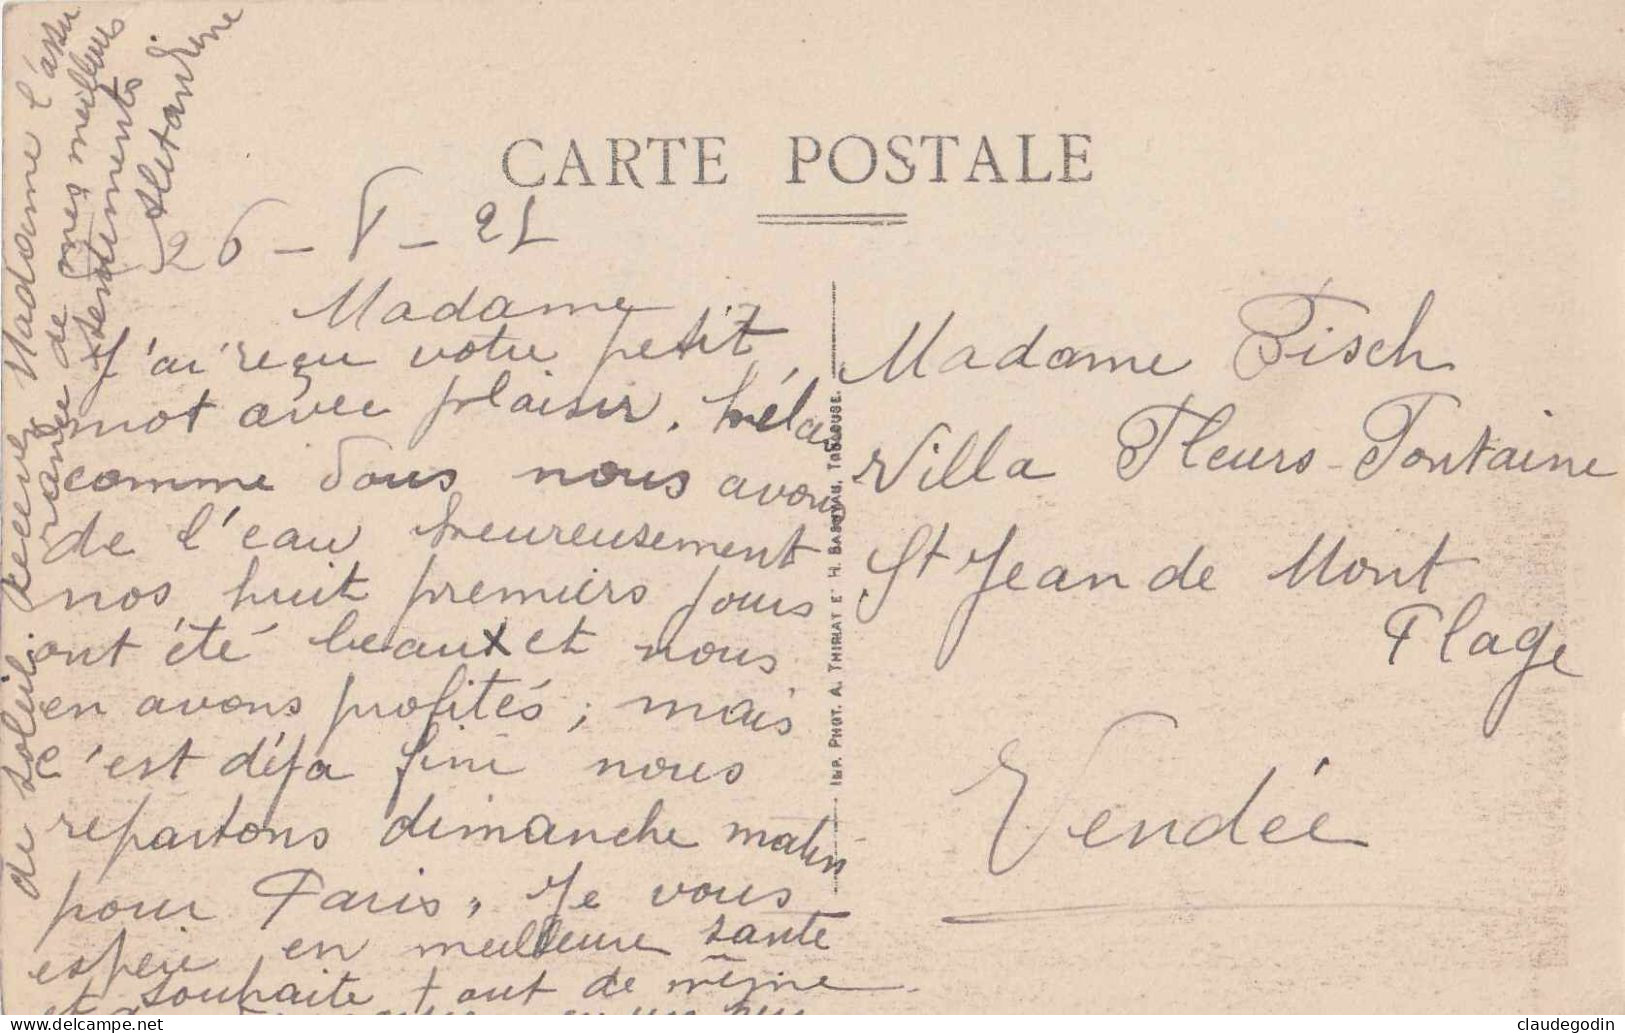 CARTE POSTALE
26 - 8 - 21
Madame
J'ai reçu votre petit
mot avec plaisir. hélas
comme vous nous avons
de l'eau heureusement
nos huit premiers jours
ont été beaux et nous
en avons profités ; mais
c'est déja fini nous
repartons dimanche matin
pour Paris, Je vous
espère en meilleure santé
et souhaite tout de même
un peu
de soleil. Recevez Madame l'assu
rance de mes meilleurs
sentiments
IMP. PHOT. A. THIRIAT ET H. BASUYAU, TOULOUSE.
Madame Fisch
Villa Fleurs-Fontaine
St Jean de Mont
Plage
Vendée
© delcampe.net
claudegodin